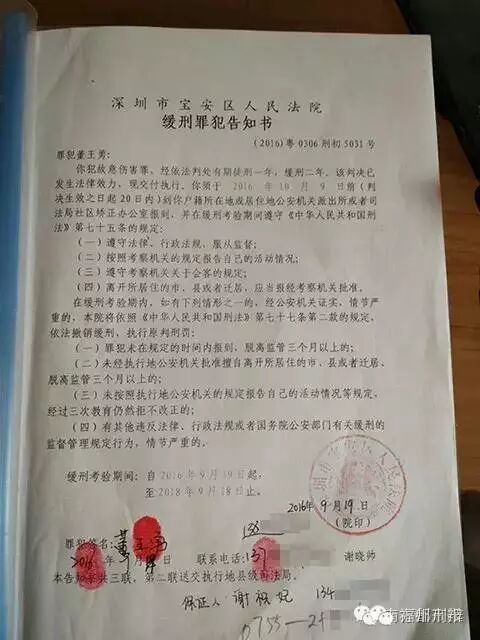 深圳市宝安区人民法院
缓刑罪犯告知书
(2016)粤0306刑初5031号
罪犯董王勇：
你犯故意伤害罪，经依法判处有期徒刑一年，缓刑二年。该判决已
发生法律效力，现交付执行。你须于 2016 年 10 月 9 日前(判
决生效之日起20日内)到你户籍所在地或居住地公安机关派出所或者司
法局社区矫正办公室报到，并在缓刑考验期间遵守《中华人民共和国刑
法》第七十五条的规定：
(一)遵守法律、行政法规，服从监督；
(二)按照考察机关的规定报告自己的活动情况；
(三)遵守考察机关关于会客的规定；
(四)离开所居住的市、县或者迁居，应当报经考察机关批准。
在缓刑考验期内，如有下列情形之一的，经公安机关证实，情节严
重的，本院将依照《中华人民共和国刑法》第七十七条第二款的规定，
依法撤销缓刑，执行原判刑罚：
(一)罪犯未在规定的时间内报到，脱离监管三个月以上的；
(二)未经执行地公安机关批准擅自离开所居住的市、县或者迁居，
脱离监管三个月以上的；
(三)未按照执行地公安机关的规定报告自己的活动情况等规定，
经过三次教育仍然拒不改正的；
(四)有其他违反法律、行政法规或者国务院公安部门有关缓刑的
监督管理规定行为，情节严重的。
缓刑考验期间：自2016年9月19日起，
至2018年9月18日止。
深圳市宝安区人民法院
2016年9月19日
(院印)
138
罪犯签名：董王勇
2016年 月 日 联系电话：137 谢晓帅
本告知书共三联，第二联送交执行地县级司法局。
保证人：谢 134
0755-2